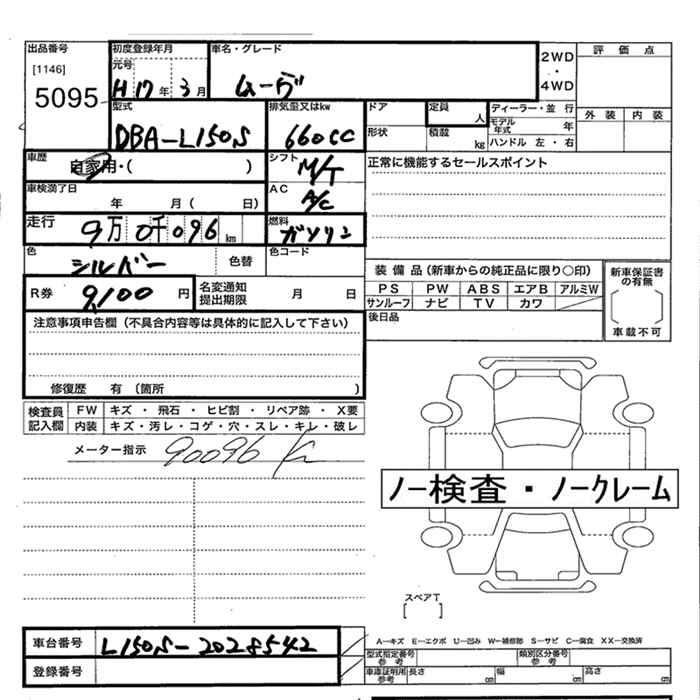 出品番号
[1146]
5095
初度登録年月
元号
H 17 年 3 月
車名・グレード
ムーヴ
2WD
・
4WD
評価点
外装 内装
型式
DBA-L150S
排気量又はkw
660cc
ドア
形状
定員
人
積載
kg
ディーラー・並行
モデル年式 年
ハンドル 左・右
車歴
自家用・( )
シフト
M/T
正常に機能するセールスポイント
車検満了日
年 月 ( 日)
AC
A/C
走行
9万 0千 096 km
燃料
ガソリン
色
シルバー
色替
色コード
装備品(新車からの純正品に限り〇印)
PS PW ABS エアB アルミW
サンルーフ ナビ TV カワ
新車保証書の有無
[ ]
車載不可
R券
9,100 円
名変通知
提出期限
月 日
後日品
注意事項申告欄(不具合内容等は具体的に記入して下さい)
修復歴 有 (箇所 )
検査員
記入欄
FW キズ・飛石・ヒビ割・リペア跡・X要
内装 キズ・汚レ・コゲ・穴・スレ・キレ・破レ
メーター指示
90096 K
ノー検査・ノークレーム
スペアT
[ ]
車台番号
L150S-2028542
登録番号
A-キズ E-エクボ U-凹み W-補修跡 S-サビ C-腐食 XX-交換済
型式指定番号
参考
類別区分番号
参考
車庫証明用
参考
長さ cm 幅 cm 高さ cm